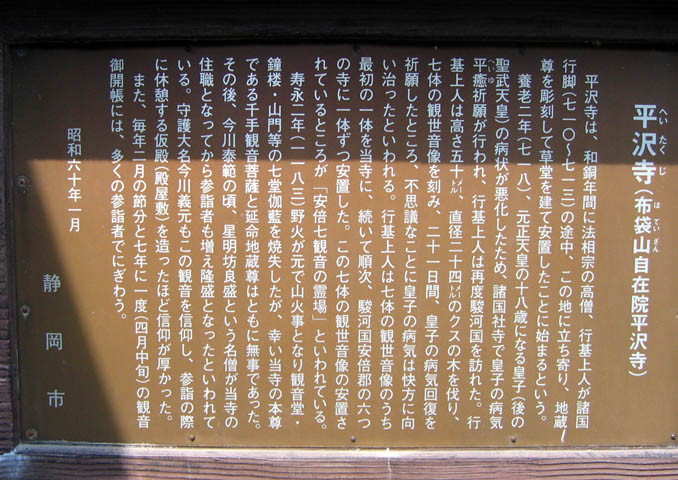 平沢寺（布袋山自在院平沢寺）
へいたくじ
ほていざん
平沢寺は、和銅年間に法相宗の高僧、行基上人が諸国
行脚（七一〇～七一三）の途中、この地に立ち寄り、地蔵
尊を彫刻して草堂を建て安置したことに始まるという。
養老二年（七一八）、元正天皇の十八歳になる皇子（後の
聖武天皇）の病状が悪化したため、諸国社寺で皇子の病気
平癒祈願が行われ、行基上人は再度駿河国を訪れた。行
へいゆ
基上人は高さ五十メートル、直径二十四メートルのクスの木を伐り、
七体の観世音像を刻み、二十一日間、皇子の病気回復を
祈願したところ、不思議なことに皇子の病気は快方に向
い治ったといわれる。行基上人は七体の観世音像のうち
最初の一体を当寺に、続いて順次、駿河国安倍郡の六つ
の寺に一体ずつ安置した。この七体の観世音像の安置さ
れているところが「安倍七観音の霊場」といわれている。
寿永二年（一一八三）野火が元で山火事となり観音堂・
鐘楼・山門等の七堂伽藍を焼失したが、幸い当寺の本尊
である千手観音菩薩と延命地蔵尊はともに無事であった。
その後、今川泰範の頃、星明坊良盛という名僧が当寺の
住職となってから参詣者も増え隆盛となったといわれて
いる。守護大名今川義元もこの観音を信仰し、参詣の際
に休憩する仮殿（殿屋敷）を造ったほど信仰が厚かった。
また、毎年二月の節分と七年に一度（四月中旬）の観音
御開帳には、多くの参詣者でにぎわう。
昭和六十年一月
静岡市